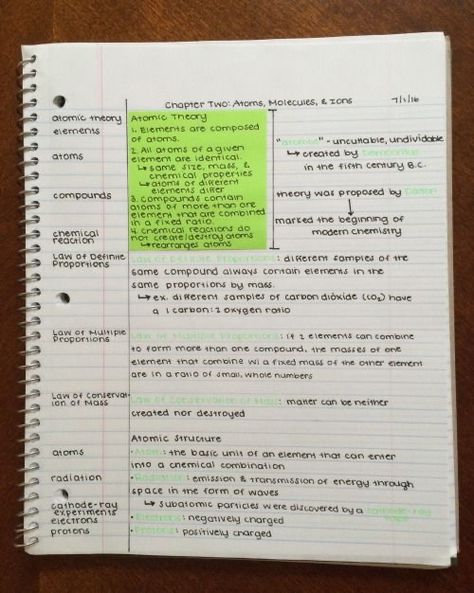 Chapter Two: Atoms, Molecules, & Ions 7/1/16
atomic theory
elements
atoms
compounds
chemical
reaction
Atomic Theory
1. Elements are composed
of atoms.
2. All atoms of a given
element are identical.
↳ same size, mass, &
chemical properties
↳ atoms of different
elements differ
3. Compounds contain
atoms of more than one
element that are combined
in a fixed ratio.
4. Chemical reactions do
not create/destroy atoms
↳ rearranges atoms
"atomos" - uncuttable, undividable
↳ created by Democritus
in the fifth century B.C.
theory was proposed by Dalton
↓
marked the beginning of
modern chemistry
Law of Definite
Proportions
Law of Definite Proportions: different samples of the
same compound always contain elements in the
same proportions by mass.
↳ ex. different samples of carbon dioxide (CO2) have
a 1 carbon: 2 oxygen ratio
Law of Multiple
Proportions
Law of Multiple Proportions: if 2 elements can combine
to form more than one compound, the masses of one
element that combine w/ a fixed mass of the other element
are in a ratio of small, whole numbers
Law of Conservat-
ion of Mass
Law of Conservation of Mass: matter can be neither
created nor destroyed
Atomic Structure
atoms
· Atom: the basic unit of an element that can enter
into a chemical combination
radiation
· Radiation: emission & transmission of energy through
space in the form of waves
cathode-ray
experiments
↳ subatomic particles were discovered by a cathode-ray
tube
electrons
· Electrons: negatively charged
protons
· Protons: positively charged